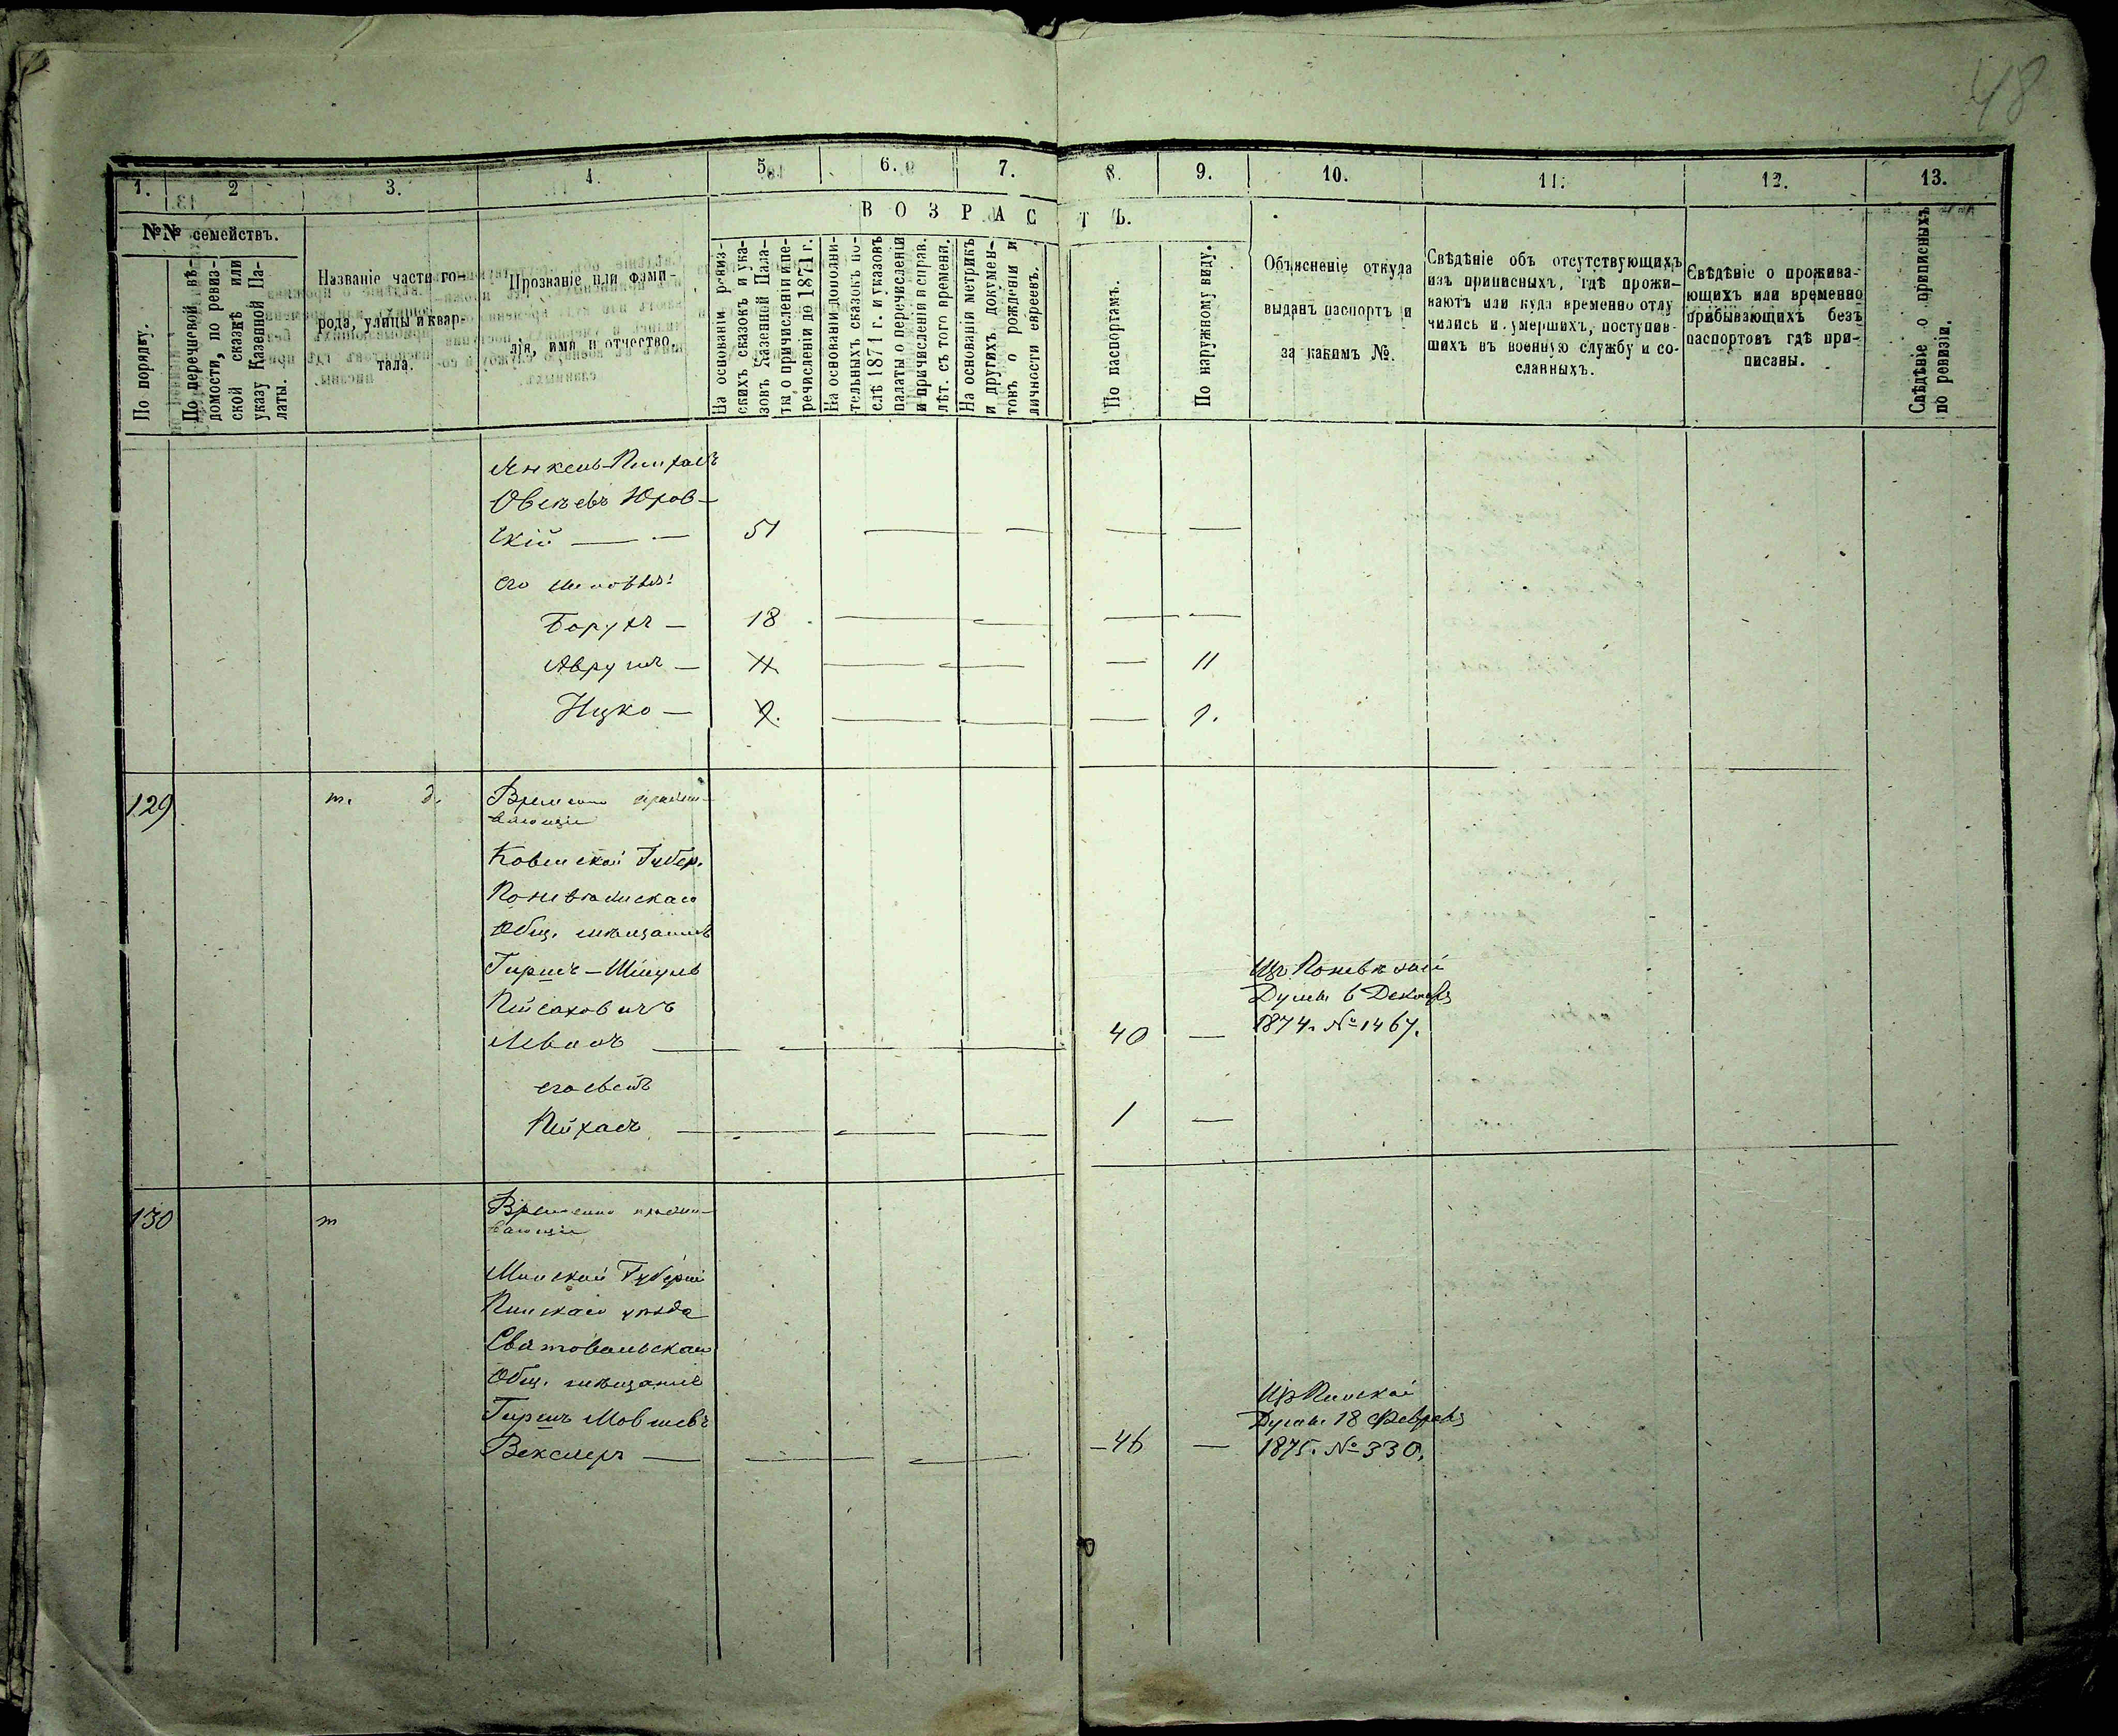 48
1. 2 3. 4. 5. 6. 7. 8. 9. 10. 11. 12. 13.
В О З Р А С Т Ъ.
№№ семействъ.
По порядку.
По перечневой вѣ-
домости, по ревиз-
ской сказкѣ или
указу Казенной Па-
латы.
Названіе части го-
рода, улицы и квар-
тала.
Прозваніе или фами-
лія, имя и отчество.
На основаніи ревиз-
скихъ сказокъ и ука-
зовъ Казенной Пала-
ты о причисленіи и пе-
речисленіи до 1871 г.
На основаніи дополни-
тельныхъ сказокъ по-
слѣ 1871 г. и указовъ
палаты о перечисленіи
и причисленіи и справ.
лѣт. съ того времени.
На основаніи метрикъ
и другихъ докумен-
товъ о рожденіи и
личности евреевъ.
По паспортамъ.
По наружному виду.
Объясненіе откуда
выданъ паспортъ и
за какимъ №.
Свѣдѣніе объ отсутствующихъ
изъ приписныхъ, гдѣ прожи-
ваютъ или куда временно отлу
чились и умершихъ, поступив-
шихъ въ военную службу и со-
сланныхъ.
Свѣдѣніе о прожива-
ющихъ или временно
прибывающихъ безъ
паспортовъ гдѣ при-
писаны.
Свѣдѣніе о приписныхъ
по ревизіи.
Янкель-Пинхасъ
Овсѣевъ Юров-
скій — — 51 — — — —
его сыновья:
Борухъ — 18 — — — —
Аврумъ — 11 — — — 11
Ицко — 9. — — — 9.
129 т. д. Временно прожи-
вающіе
Ковенской Губер.
Поневѣжскаго
Общ. мѣщанинъ
Гиршъ-Шмуль Изъ Поневѣжской
Пейсаховичъ Думы 6 Декабря
— — 40 — 1874. № 1467.
его сынъ
Пейхасъ — — — 1 —
130 т Временно прожи-
вающіе
Минской Губерніи
Пинскаго уѣзда
Святовольскаго
Общ. мѣщанинъ Из Пинской
Гиршъ Мовшевъ Думы 18 Февраля
Векслеръ — — — 46 — 1875. № 330.